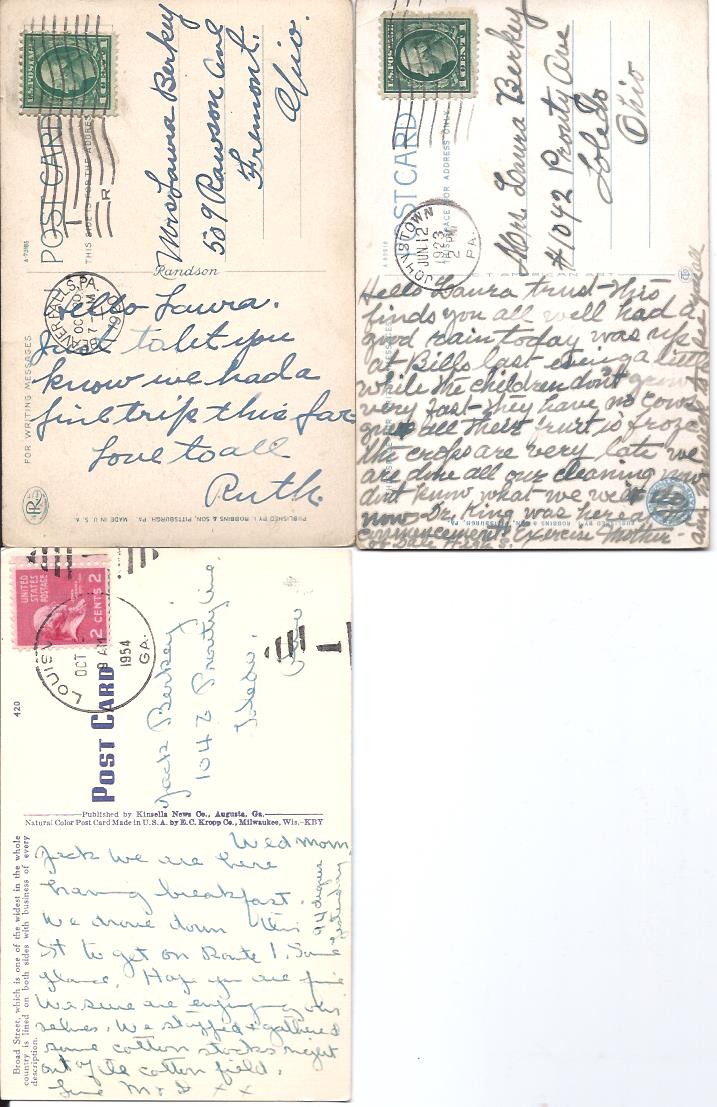 U.S.POSTAGE
1 CENT 1
POST CARD
THIS SIDE IS FOR THE ADDRESS
A-73986
Mrs Laura Berkey
509 Rawson Ave
Fremont.
Ohio.
Randson
BEAVER FALLS, PA.
OCT 30
7 - AM
FOR WRITING MESSAGES
Hello Laura.
Just to let you
know we had a
fine trip this far
Love to all
Ruth
PUBLISHED BY I. ROBBINS & SON, PITTSBURGH, PA. MADE IN U.S.A.
U.S.POSTAGE
POST CARD
THIS SPACE FOR ADDRESS ONLY
JOHNSTOWN
JUN 12
1923
PA.
Mrs. Laura Berkey
#1042 Prouty Ave
Toledo
Ohio
C.T. AMERICAN ART
Hello Laura trust this
finds you all well had a
good rain today was up
at Bills last evening a little
while the children dont grow
very fast they have no cows
all their fruit is froze
the crops are very late we
are done all our cleaning now
dont know what we
now Dr. King was here
commencement Exercise Mother
PUBLISHED BY I. ROBBINS & SON, PITTSBURGH, PA.
UNITED
STATES
POSTAGE
2 CENTS 2
OCT
9 AM
1954
GA.
420
POST CARD
Jack Berkey
1042 Prouty Ave.
Toledo.
Ohio
Published by Kinsella News Co., Augusta, Ga.
Natural Color Post Card Made in U.S.A. by E.C. Kropp Co., Milwaukee, Wis.-KBY
Broad Street, which is one of the widest in the whole
country is lined on both sides with business of every
description.
Wed morn.
Jack We are here
having breakfast.
We drove down this
St to get on Route 1. Some
place. Hope you are fine
We sure are enjoying our
selves. We stopped & gathered
some cotton stocks right
out of the cotton field.
Love M & D x x
94 degrees
yesterday